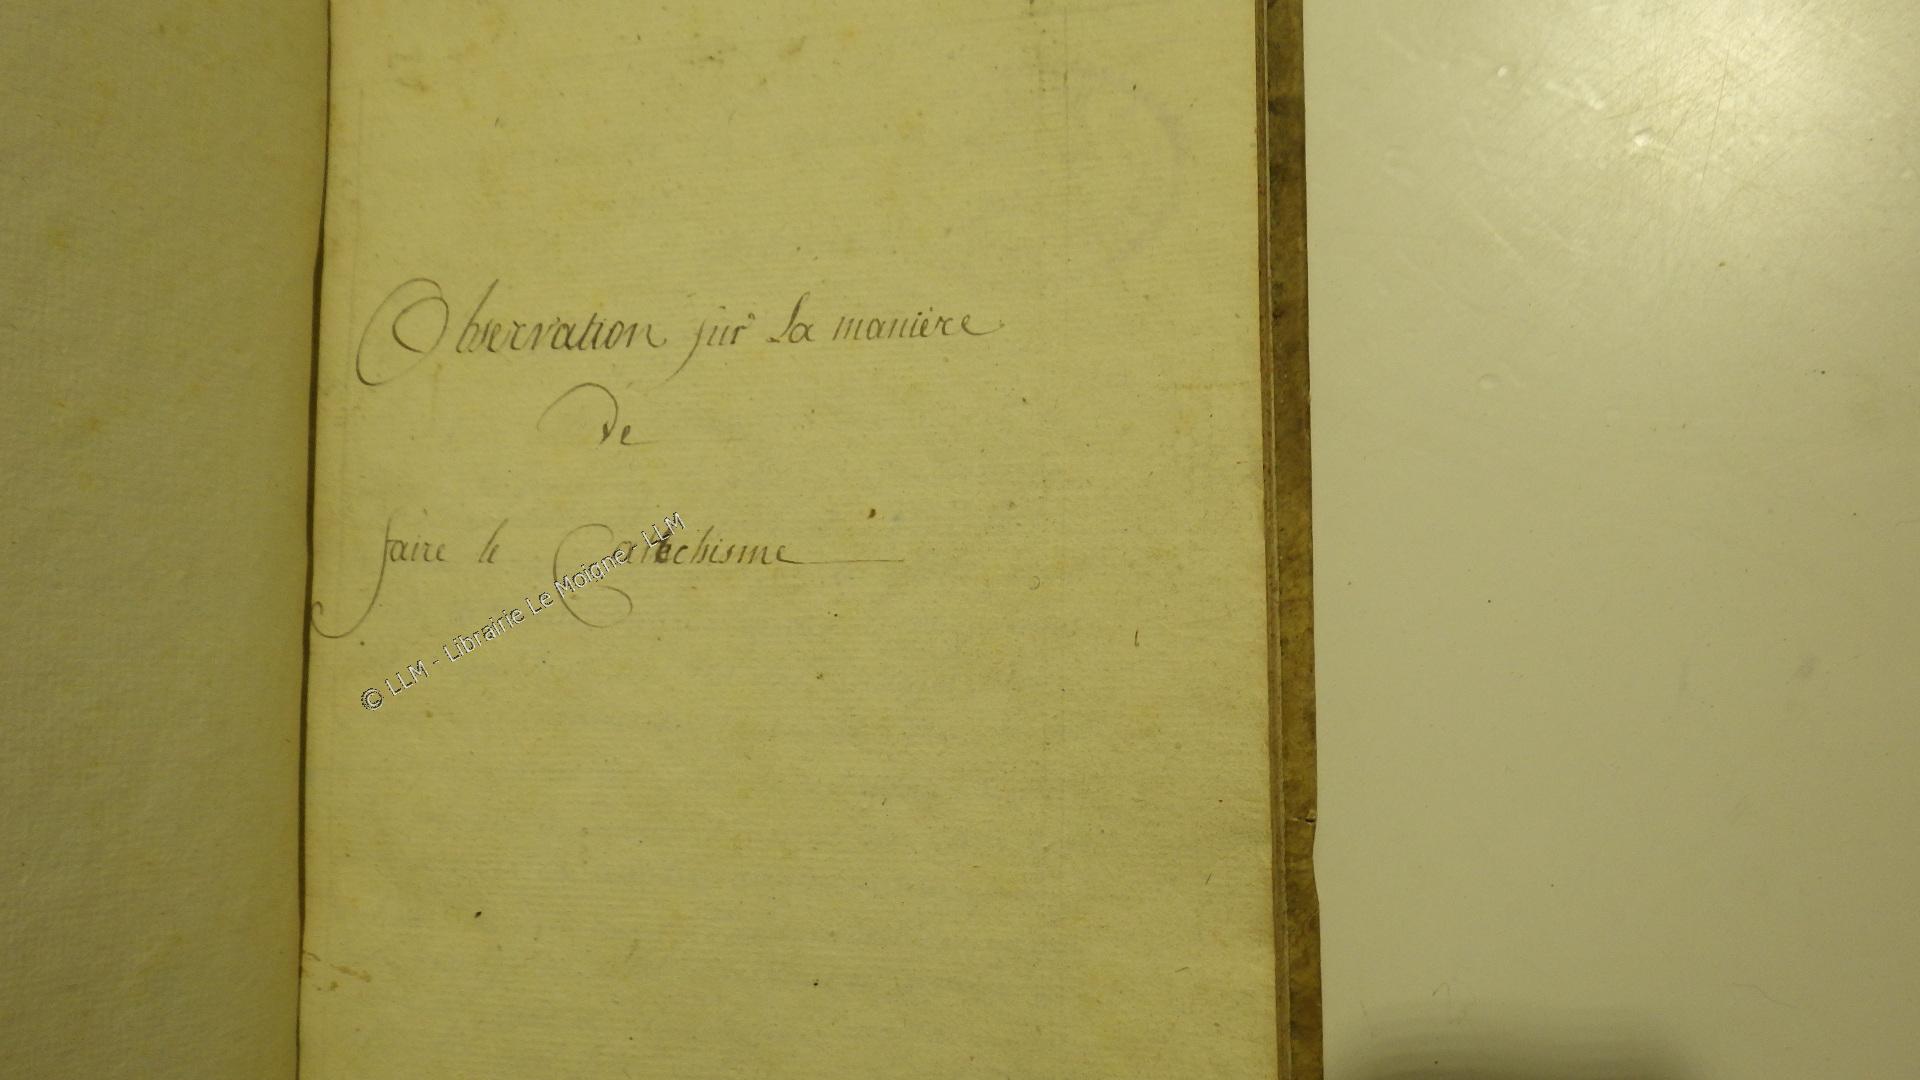 Observation sur La manière
De
faire le Catechisme
© LLM - Librairie Le Moigne - LLM